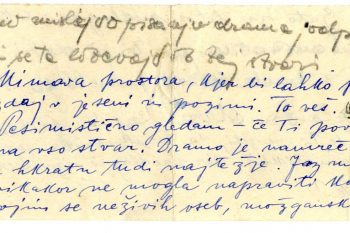 mislijo pisanje drame
se te lotevajo te stvari
Nimava prostora, kjer bi lahko
zdaj v jeseni in pozimi. To veš.
Pesimistično gledam – če Ti pov
na vso stvar. Dramo je namreč
hkratu tudi najtežje. Jaz
nikakor ne mogla napraviti
se neživih oseb, možgansk